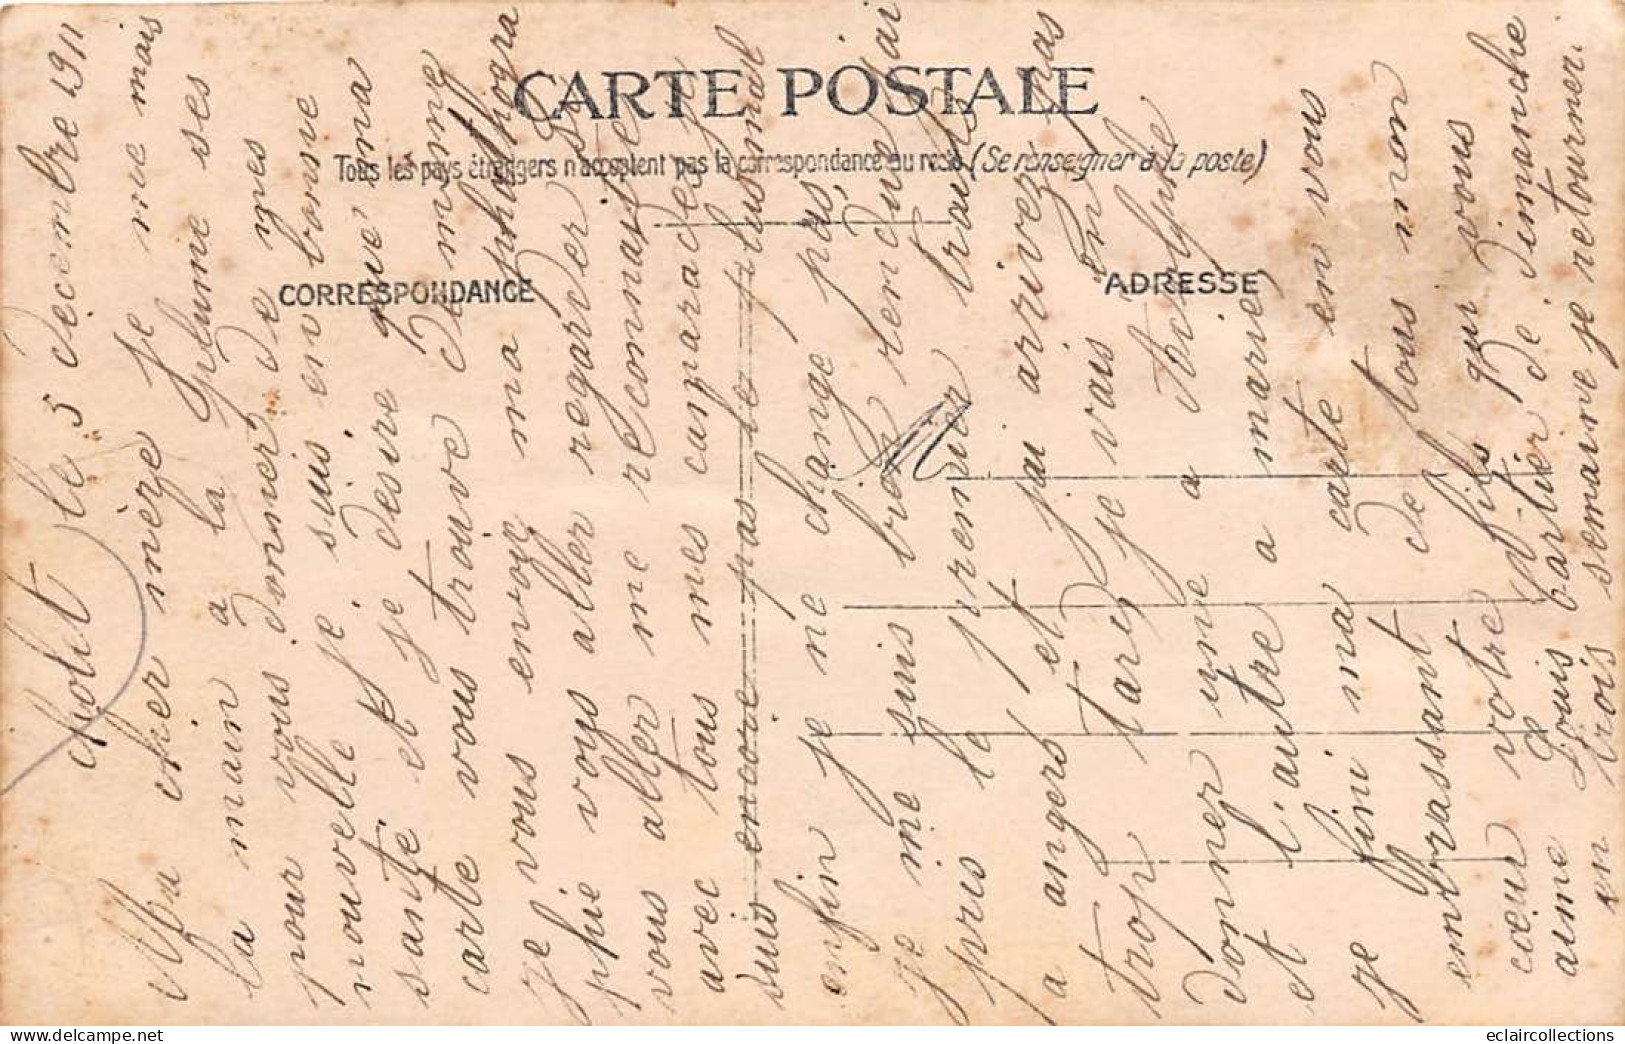 CARTE POSTALE
Tous les pays étrangers n'acceptent pas la correspondance au recto (Se renseigner à la poste)
CORRESPONDANCE
ADRESSE
cholet le 5 décembre 1911
Ma chier mère je me mais
la main a la plume ses
pour vous donner de mes
nouvelle je suis en bonne
santé et je desire que ma
carte vous trouve de même
je vous envoie ma phothogra
phie vous aller regarder si
vous aller me reconnaitre
avec tous mes camarades je
suis encore pas le plus mal
enfin je ne change pas,
je me suis bien rendu j'ai
pris le premier train
a angers et jai arrivez pas
trop tard je vais en
donner une a
et l'autre a marie
je fini ma carte en vous
embrassant de tous mon
cœur votre fils qui vous
aime Louis bartier de dimanche
en trois semaine je retournez.
eclaircollections